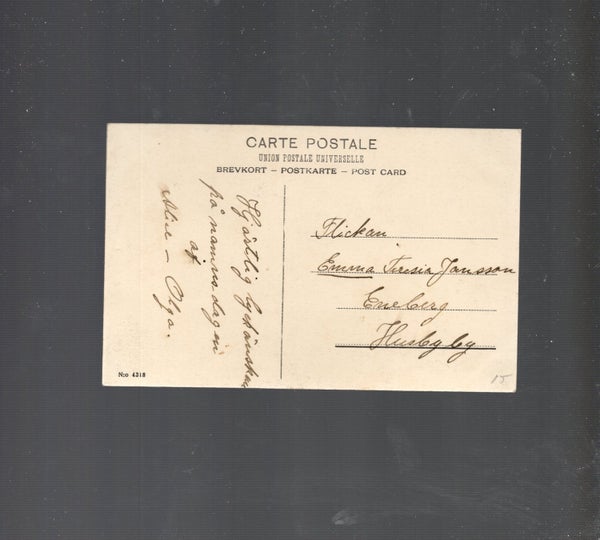 CARTE POSTALE
UNION POSTALE UNIVERSELLE
BREVKORT – POSTKARTE – POST CARD
Hjärtlig lyckönskan
på namnsdagen
af
– Olga.
Flickan
Emma Teresia Jansson
Eneberg
Husbyby
No 4318
15